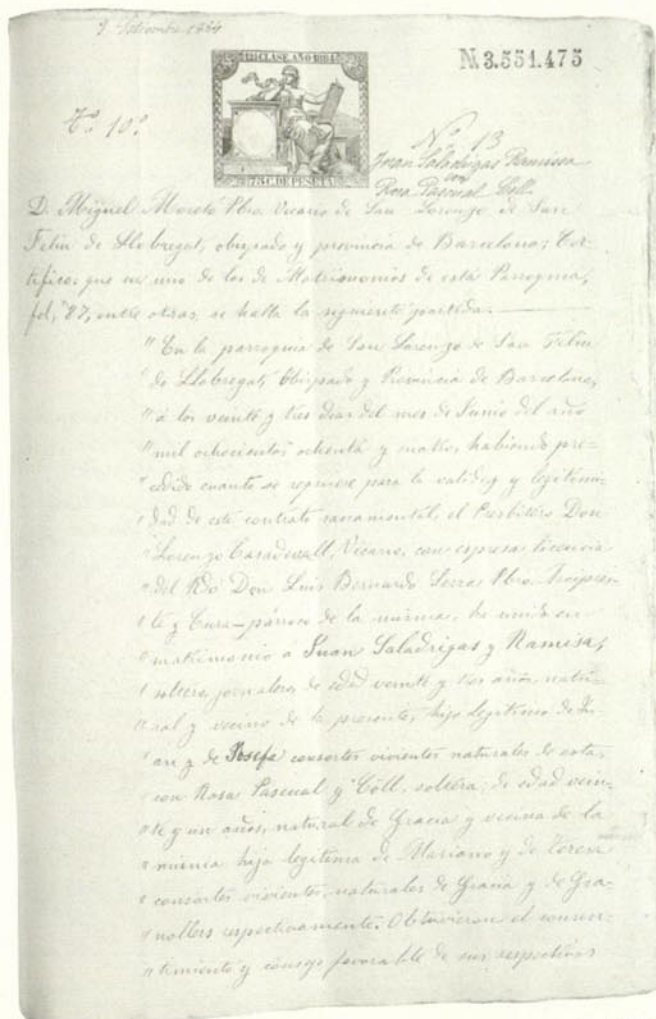 9 Setiembre 1884
12ª CLASE. AÑO 1884
N. 3.551.475
Tº 10º
75 C. DE PESETA
Nº 13
Juan Saladrigas Ramissa
con
Rosa Pascual Coll.
D. Miguel Moretó Pbro. Vicario de San Lorenzo de San
Feliu de Llobregat, obispado y provincia de Barcelona; Cer-
tifico: que en uno de los de Matrimonios de esta Parroquia,
fol, 87, entre otras, se halla la siguiente partida.
" En la parroquia de San Lorenzo de San Feliu
" de Llobregat, Obispado y Provincia de Barcelona,
" á los veinte y tres dias del mes de Junio del año
" mil ochocientos ochenta y cuatro, habiendo pre-
" cedido cuanto se requiere para la validez y legitimi-
" dad de este contrato sacramental, el Presbitero Don
" Lorenzo Casadevall, Vicario, con espresa licencia
" del Rdo Don Luis Bernardo Serra Pbro.
" te y Cura-párroco de la misma, ha unido en
" matrimonio á Juan Saladrigas y Ramisa,
" soltero, jornalero, de edad veinte y tres años, natu-
" ral y vecino de la presente, hijo legitimo de Ju-
" an y de Josefa consortes vivientes naturales de esta,
" con Rosa Pascual y Coll, soltera, de edad vein-
" te y un años, natural de Gracia y vecina de la
" misma hija legitima de Mariano y de Teresa
" consortes vivientes, naturales de Gracia y de Gra-
" nollers respectivamente. Obtuvieron el consen-
" timiento y consejo favorable de sus respectivos